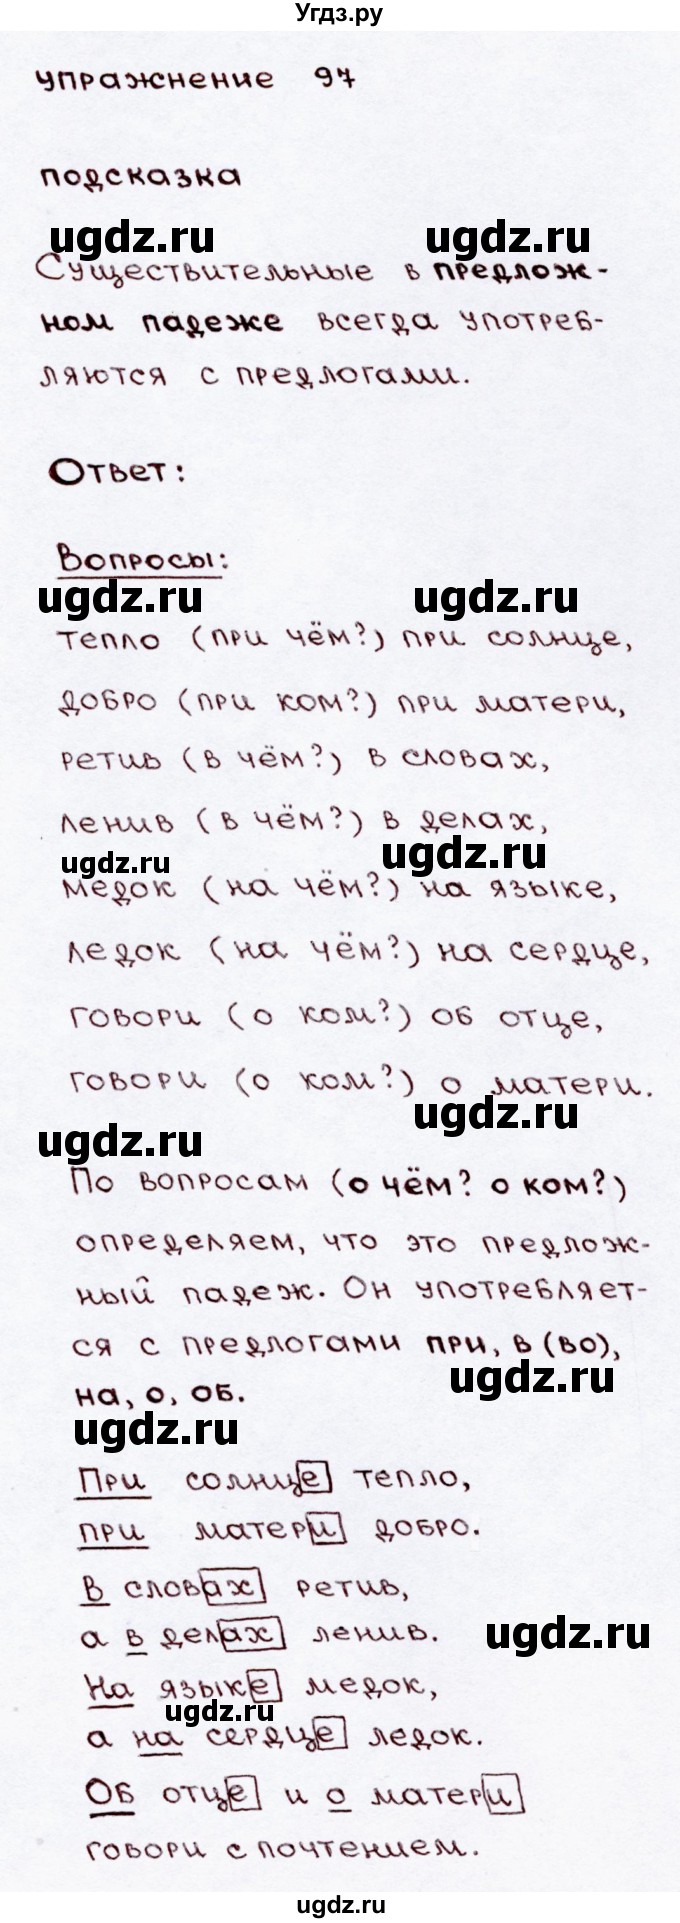 Угдз.ру
упражнение 97
подсказка
ugdz.ru ugdz.ru
Существительные в предлож-
ном падеже всегда употреб-
ляются с предлогами.
Ответ:
Вопросы:
ugdz.ru ugdz.ru
тепло (при чём?) при солнце,
добро (при ком?) при матери,
ретив (в чём?) в словах,
ленив (в чём?) в делах,
ugdz.ru ugdz.ru
медок (на чём?) на языке,
ледок (на чём?) на сердце,
говори (о ком?) об отце,
говори (о ком?) о матери.
ugdz.ru ugdz.ru
По вопросам (о чём? о ком?)
определяем, что это предлож-
ный падеж. Он употребляет-
ся с предлогами при, в (во),
ugdz.ru
на, о, об.
ugdz.ru
При солнце тепло,
при матери добро.
В словах ретив,
а в делах ленив.
ugdz.ru
На языке медок,
ugdz.ru
а на сердце ледок.
Об отце и о матери
говори с почтением.
ugdz.ru